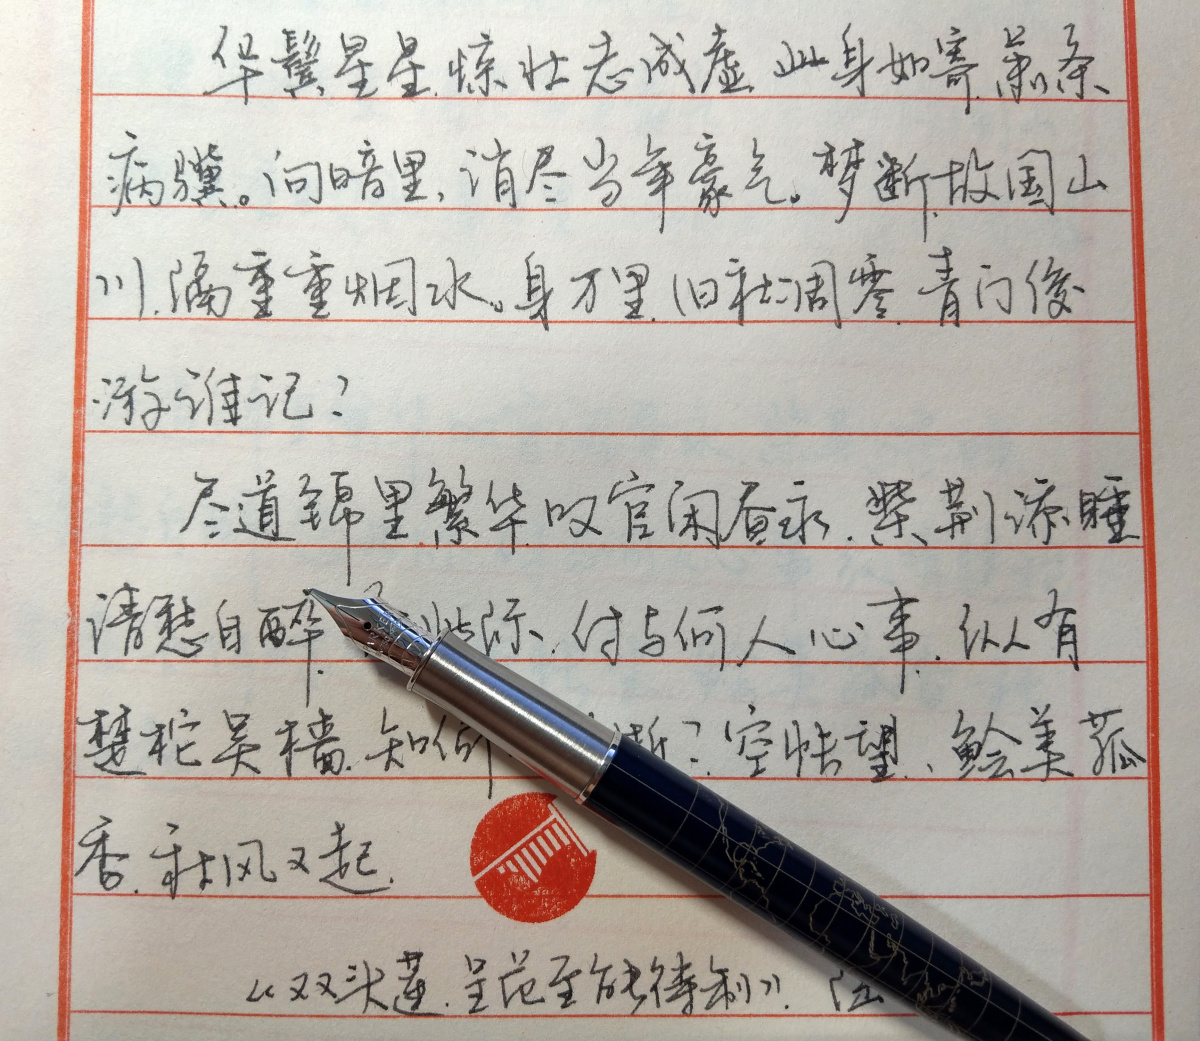 华鬓星星.惊壮志成虚 此身如寄.萧条
病骥。向暗里,消尽当年豪气。梦断故国山
川.隔重重烟水。身万里.旧社凋零.青门俊
游谁记?
尽道锦里繁华.叹官闲昼永.柴荆添睡
清愁自醉.此际.付与何人心事.纵有
楚柁吴樯.知何逝?空怅望、鲙美菰
香.秋风又起.
《双头莲.呈范至能待制》.陆